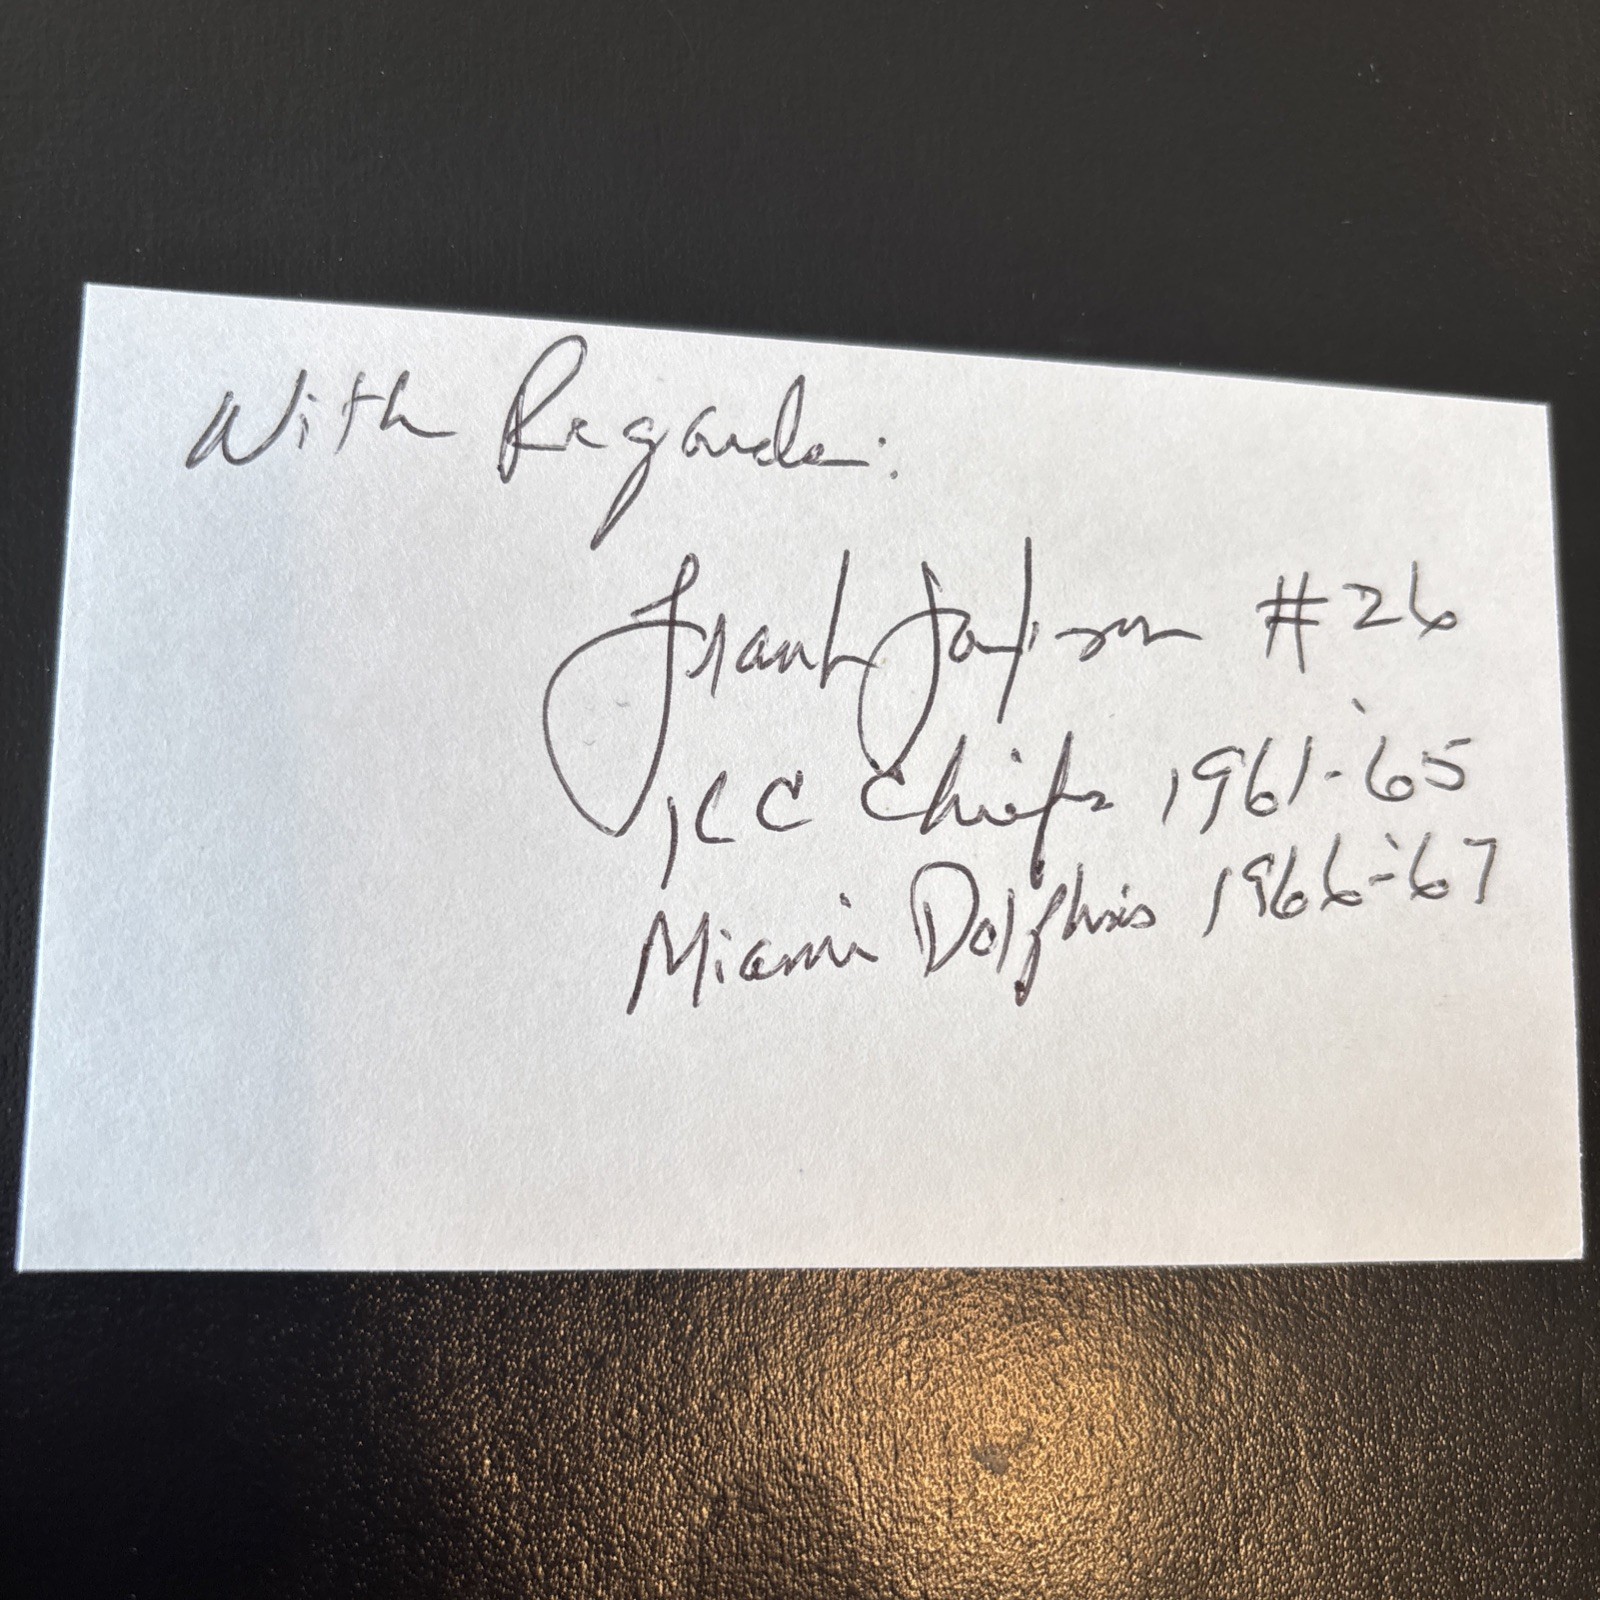 With Regards:
Frank Jackson #26
KC Chiefs 1961-'65
Miami Dolphins 1966-'67